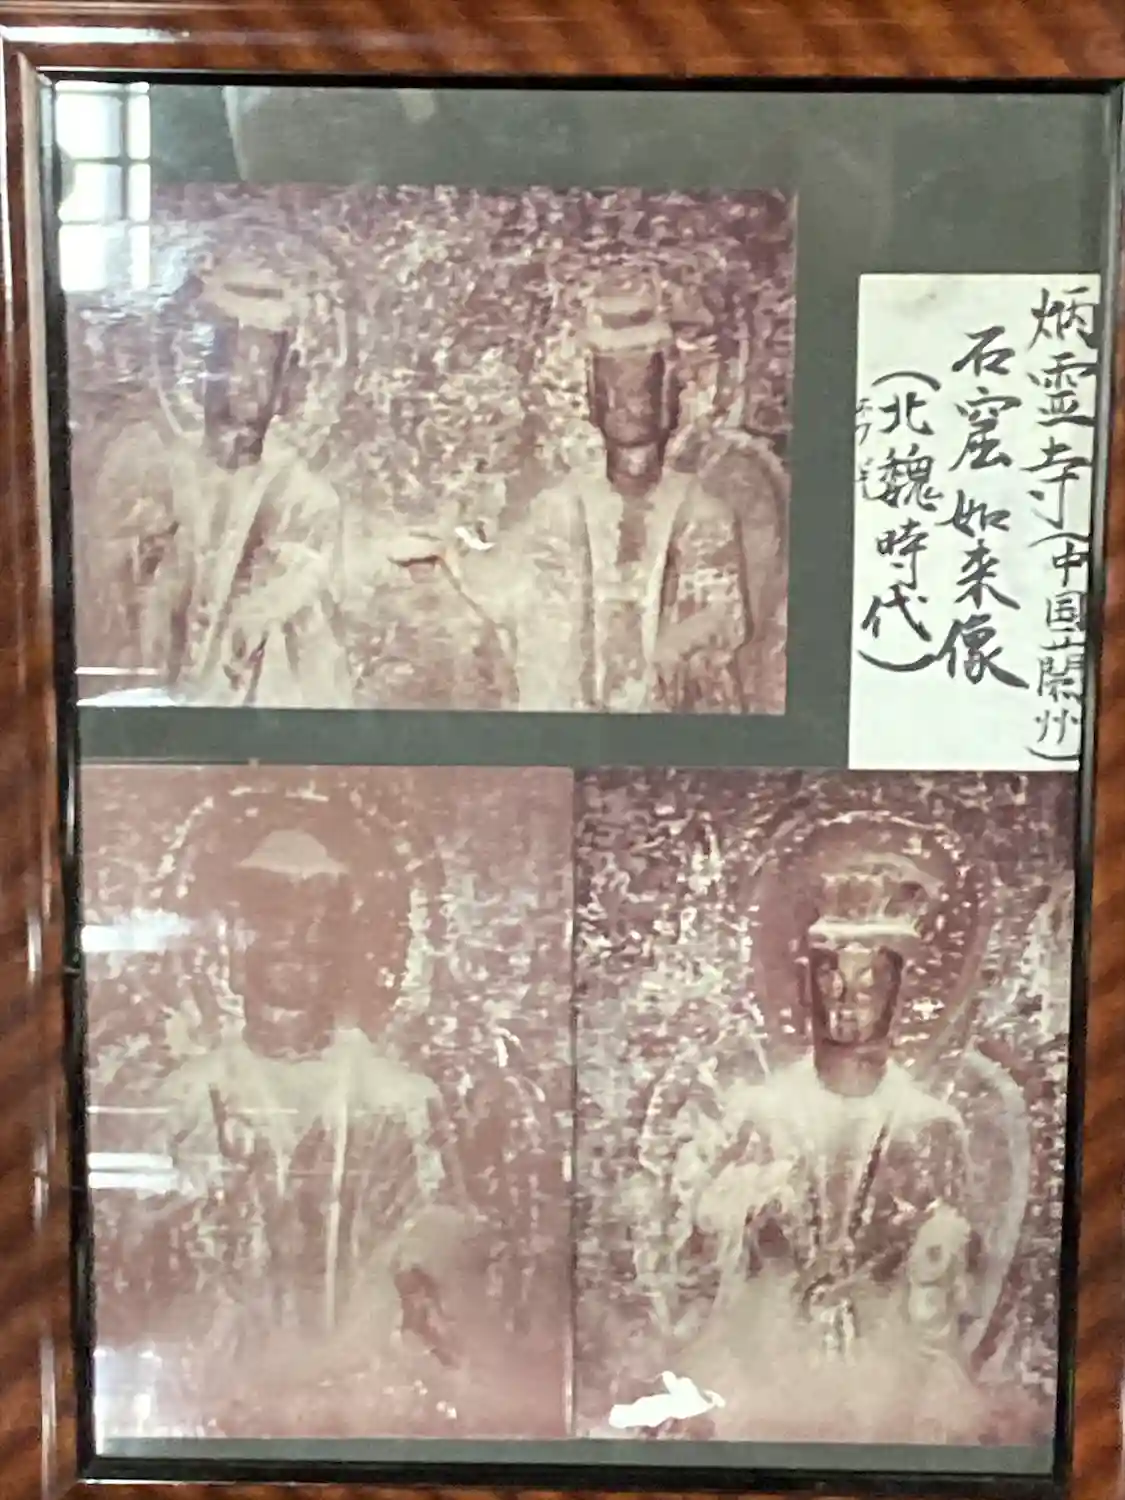 炳霊寺(中国蘭州)
石窟如来像
(北魏時代)